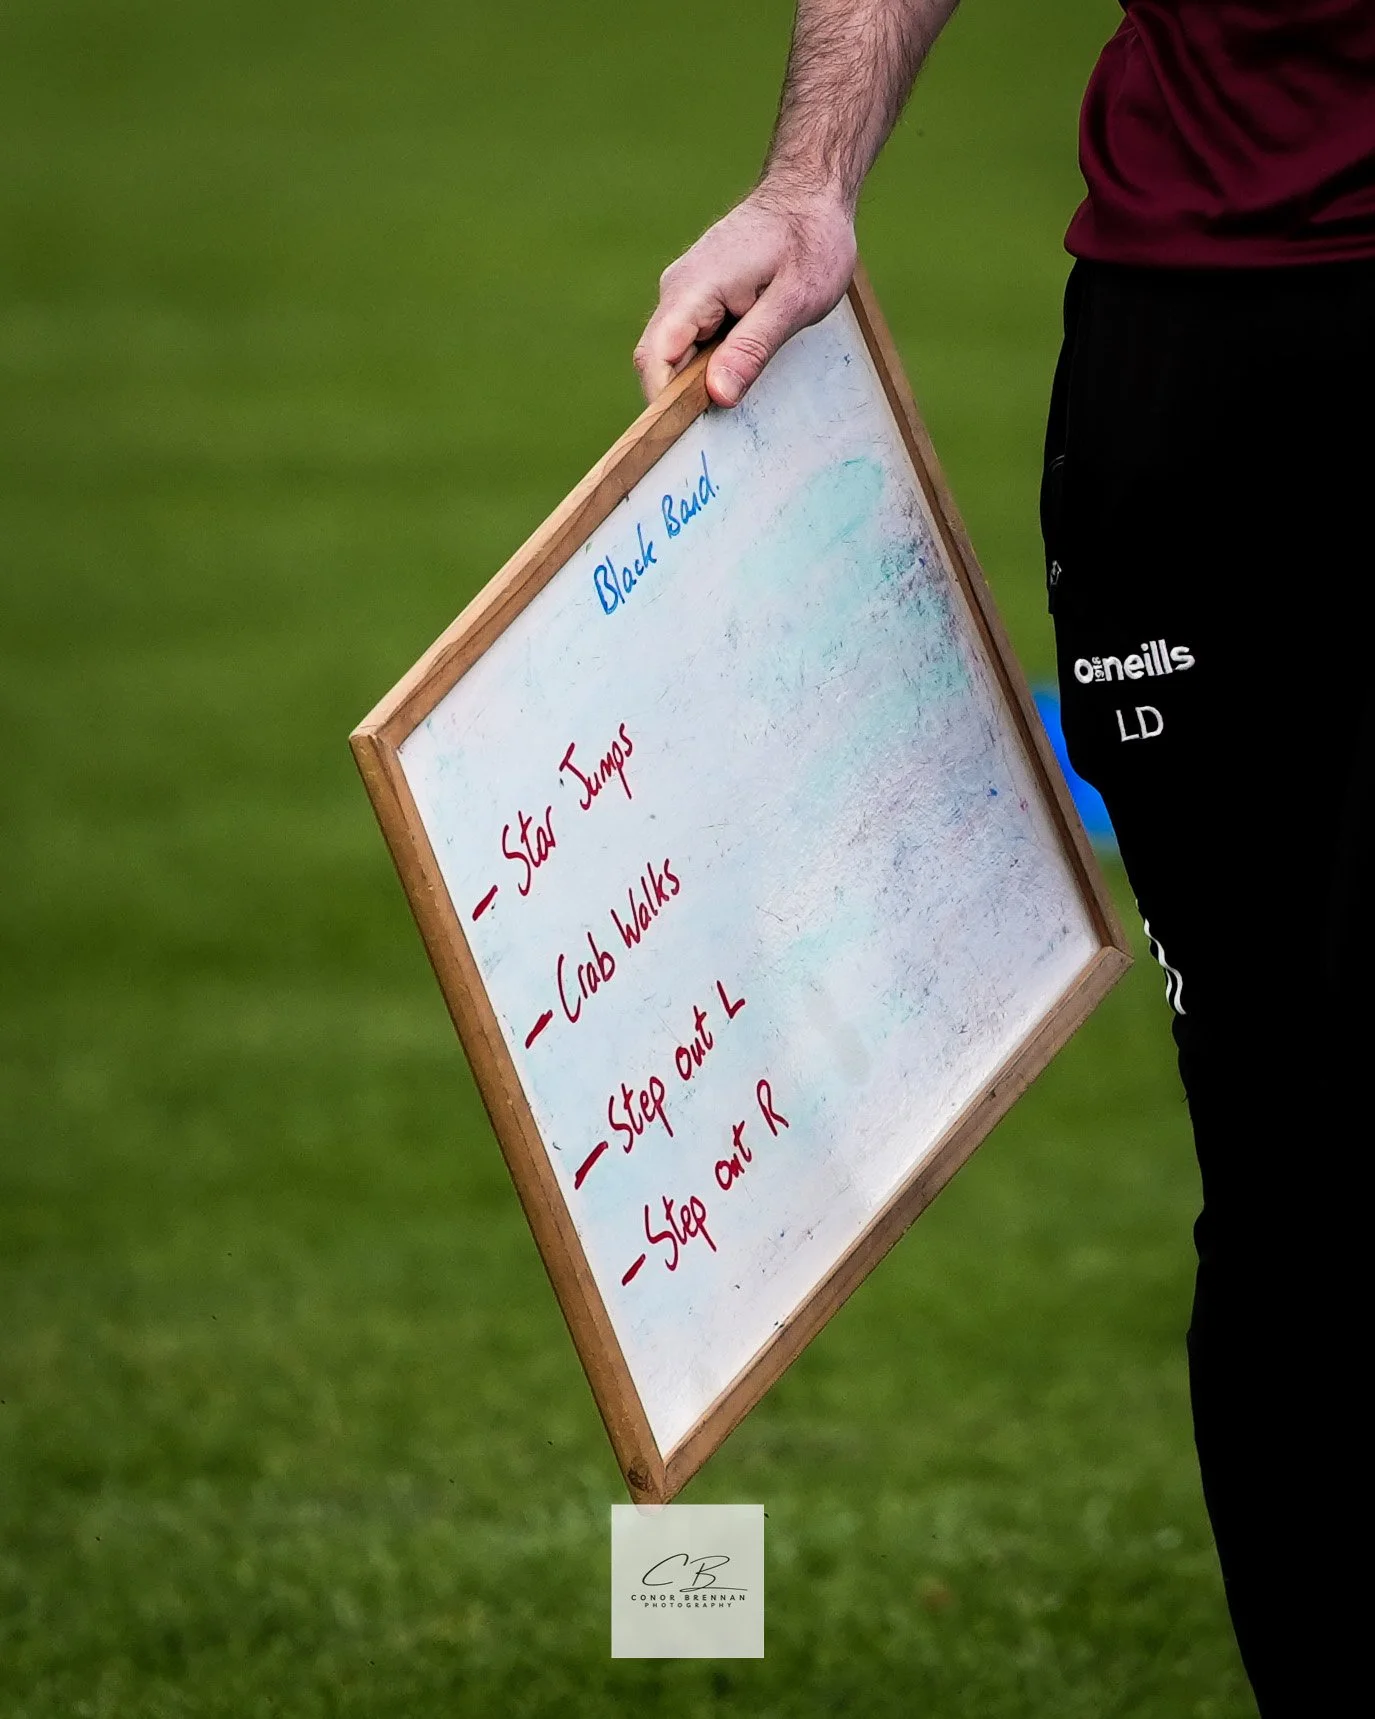 Black Band.
- Star Jumps
- Crab Walks
- Step out L
- Step out R
o'neills
1918
LD
CB
CONOR BRENNAN
PHOTOGRAPHY